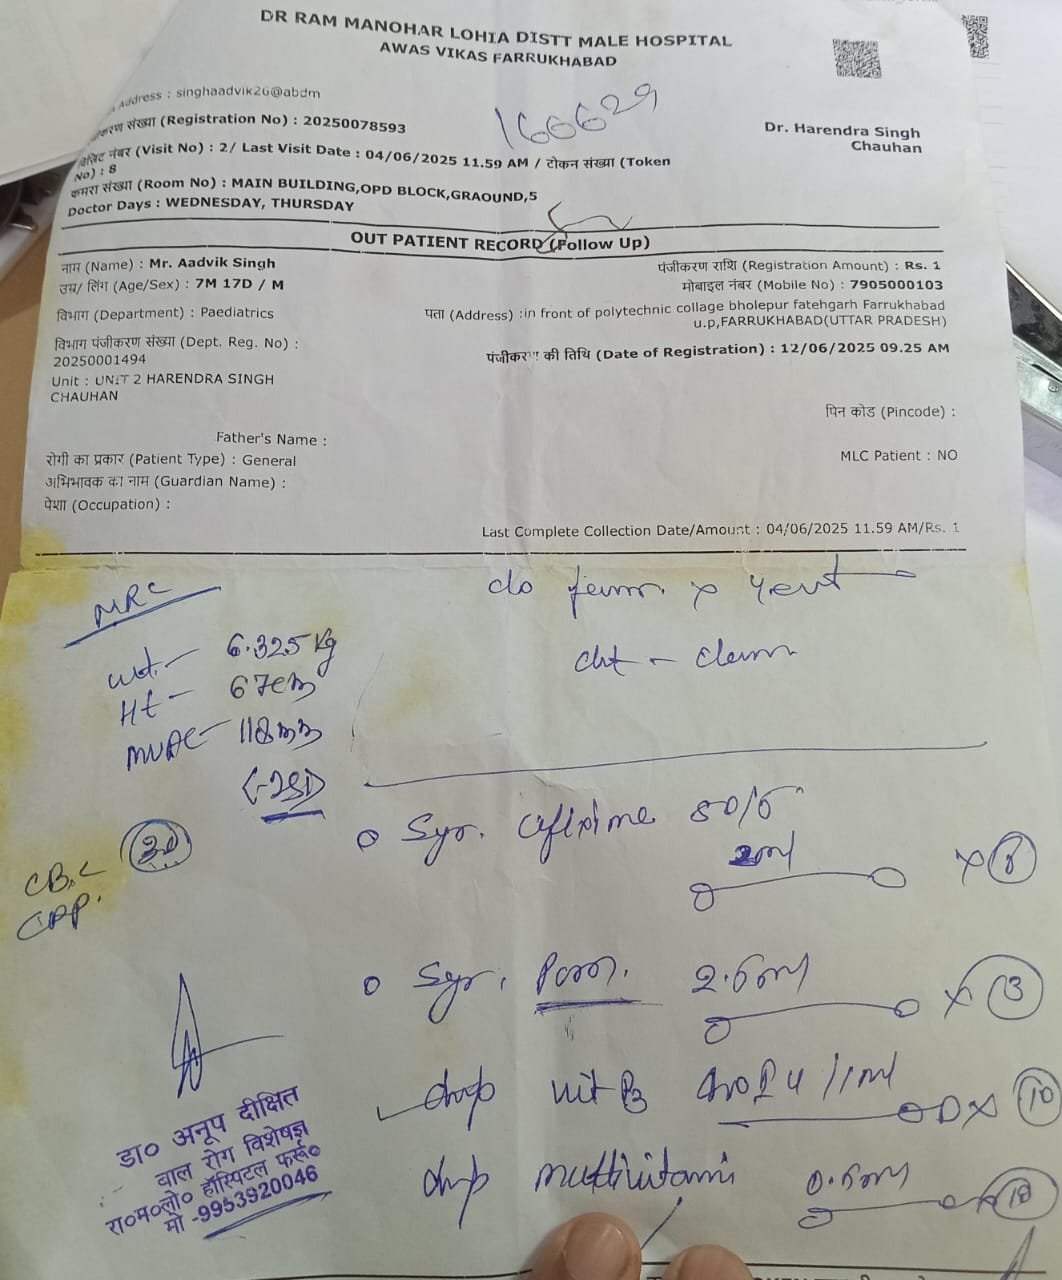 DR RAM MANOHAR LOHIA DISTT MALE HOSPITAL
AWAS VIKAS FARRUKHABAD
Address : singhaadvik26@abdm
160629
संख्या (Registration No) : 20250078593
Dr. Harendra Singh
Chauhan
विजिट नंबर (Visit No) : 2/ Last Visit Date : 04/06/2025 11.59 AM / टोकन संख्या (Token
No) : 8
कमरा संख्या (Room No) : MAIN BUILDING,OPD BLOCK,GRAOUND,5
Doctor Days : WEDNESDAY, THURSDAY
OUT PATIENT RECORD (Follow Up)
नाम (Name) : Mr. Aadvik Singh
पंजीकरण राशि (Registration Amount) : Rs. 1
उम्र/ लिंग (Age/Sex) : 7M 17D / M
मोबाइल नंबर (Mobile No) : 7905000103
विभाग (Department) : Paediatrics
पता (Address) :in front of polytechnic collage bholepur fatehgarh Farrukhabad
u.p,FARRUKHABAD(UTTAR PRADESH)
विभाग पंजीकरण संख्या (Dept. Reg. No) :
20250001494
की तिथि (Date of Registration) : 12/06/2025 09.25 AM
Unit : UNIT 2 HARENDRA SINGH
CHAUHAN
पिन कोड (Pincode) :
Father's Name :
रोगी का प्रकार (Patient Type) : General
MLC Patient : NO
अभिभावक का नाम (Guardian Name) :
पेशा (Occupation) :
Last Complete Collection Date/Amount : 04/06/2025 11.59 AM/Rs. 1
c/o
NRC
wt. - 6.325 kg
Ht - 67cm
MUAC - 118
<-2SD
Syr. Cefixime
2ml
CBC
CRP.
Syr.
drop vit D3
drop multivitamin
डा० अनूप दीक्षित
बाल रोग विशेषज्ञ
रा०म०लो० हॉस्पिटल फर्रू०
मो -9953920046